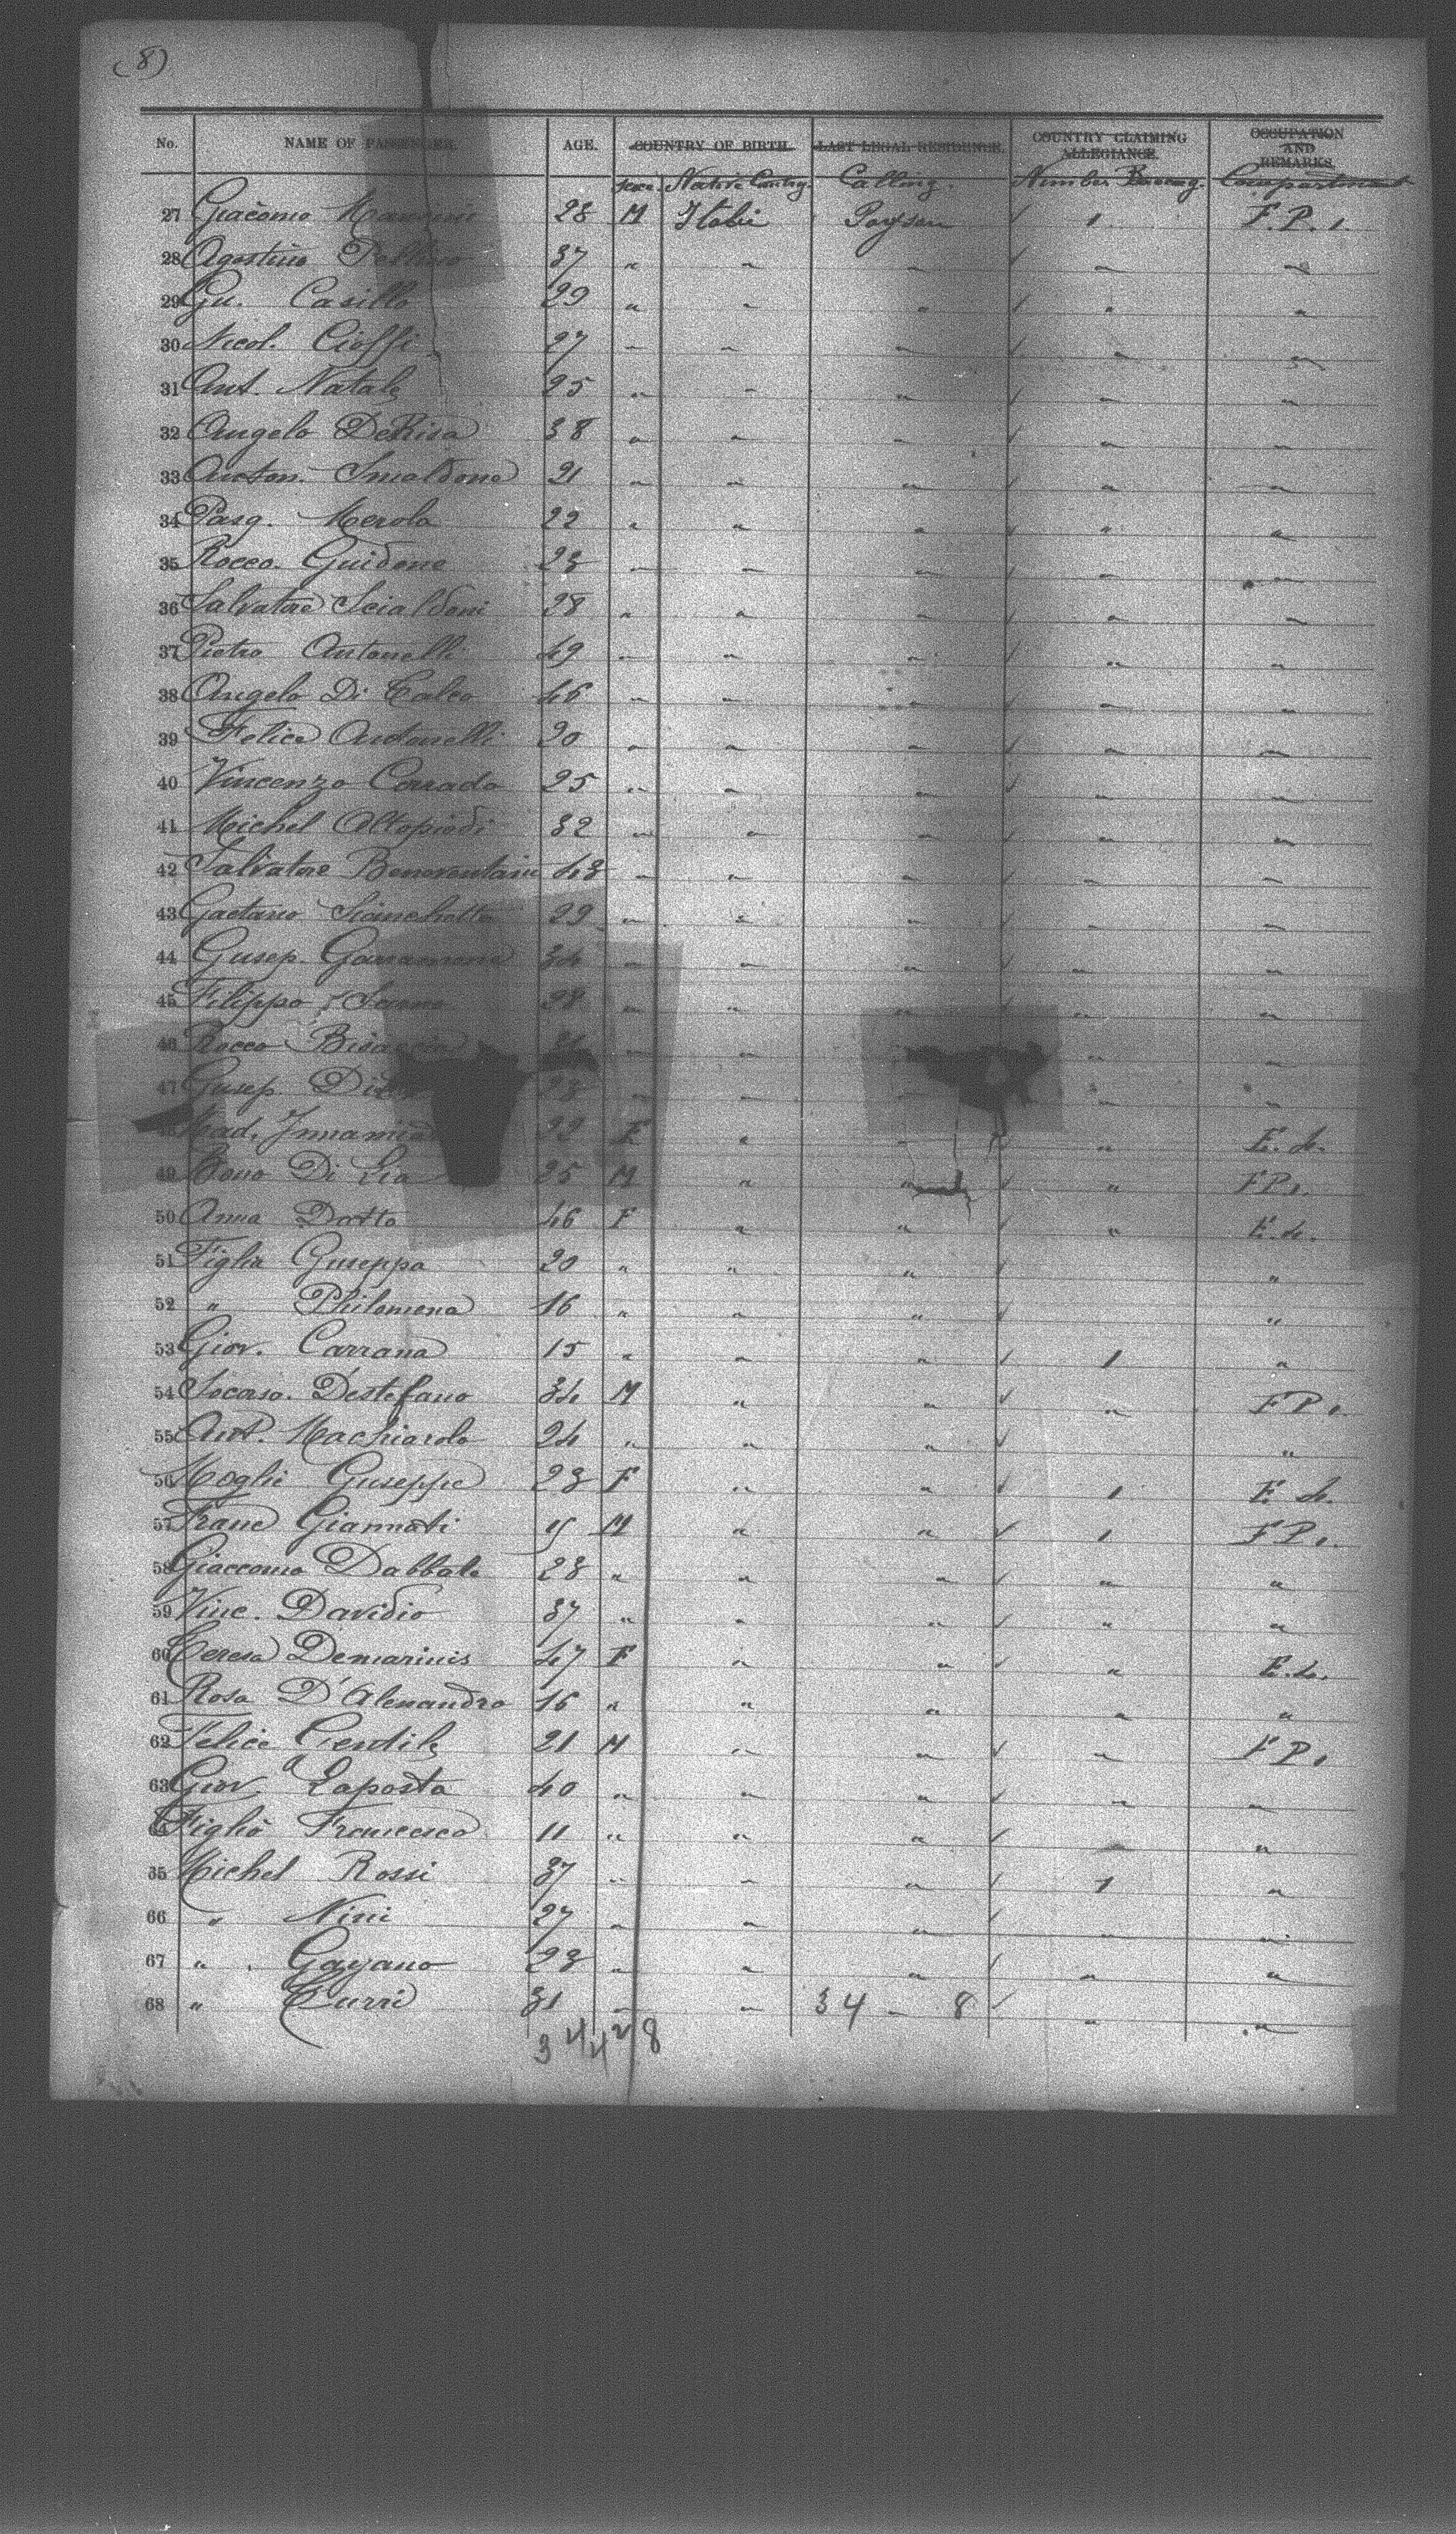 (8)
No. NAME OF PASSENGER. AGE. COUNTRY OF BIRTH. LAST LEGAL RESIDENCE. COUNTRY CLAIMING ALLEGIANCE. OCCUPATION AND REMARKS.
Sexe Native Contry. Calling. Number Compartment
27 Giacomo 28 M Italie Paysan ✓ 1 F.P.1.
28 Agostino Pellino 37 " " " ✓ " "
29 Gu. Casillo 29 " " " ✓ " "
30 Nicol. Cioffi 27 " " " ✓ " "
31 Ant. Natale 25 " " " ✓ " "
32 Angelo DeRisa 38 " " " ✓ " "
33 Anton. Smaldone 21 " " " ✓ " "
34 Pasq. Merola 22 " " " ✓ " "
35 Rocco. Guidone 23 " " " ✓ " "
36 Salvatore Scialdoni 28 " " " ✓ " "
37 Pietro Antonelli 49 " " " ✓ " "
38 Angelo Di Calco 46 " " " ✓ " "
39 Felice Antonelli 20 " " " ✓ " "
40 Vincenzo Corrado 25 " " " ✓ " "
41 Michel Altopiedi 32 " " " ✓ " "
42 Salvatore 43 " " " ✓ " "
43 Gaetano 29 " " " ✓ " "
44 Gusep. 34 " " " ✓ " "
45 Filippo 28 " " " " "
46 Rocco " " " "
47 Gusep. 23 " " " "
22 F " " ✓ " E.4.
49 Di Lia 25 M " " ✓ " F.P.1.
50 Anna Datto 46 F " " ✓ " E.4.
51 Figlia Guseppa 20 " " " ✓ "
52 " Philomena 16 " " " ✓ "
53 Giov. Carrana 15 " " " ✓ 1 "
54 Socorso. Destefano 34 M " " ✓ " F P 1.
55 Ant. Machiarolo 24 " " " ✓ "
56 Moglie Guseppe 23 F " " ✓ 1 E. 4.
57 Franc Giannati M " " ✓ 1 F P 1.
58 Giaccomo Dabbale 28 " " " ✓ " "
59 Vinc. Davidio 37 " " " ✓ " "
60 Teresa Demarinis 47 F " " ✓ " E.4.
61 Rosa D'Alessandro 16 " " " " "
62 Felice Gentile 21 M " " ✓ " F P 1
63 Giov. Laposta 40 " " " ✓ " "
64 Figlio Francesco 11 " " " ✓ "
65 Michel Rossi 37 " " " ✓ 1 "
66 " Nini 27 " " " ✓ " "
67 " Gayano 23 " " " ✓ " "
68 " Curri 31 " " 34 – 8 ✓ " "